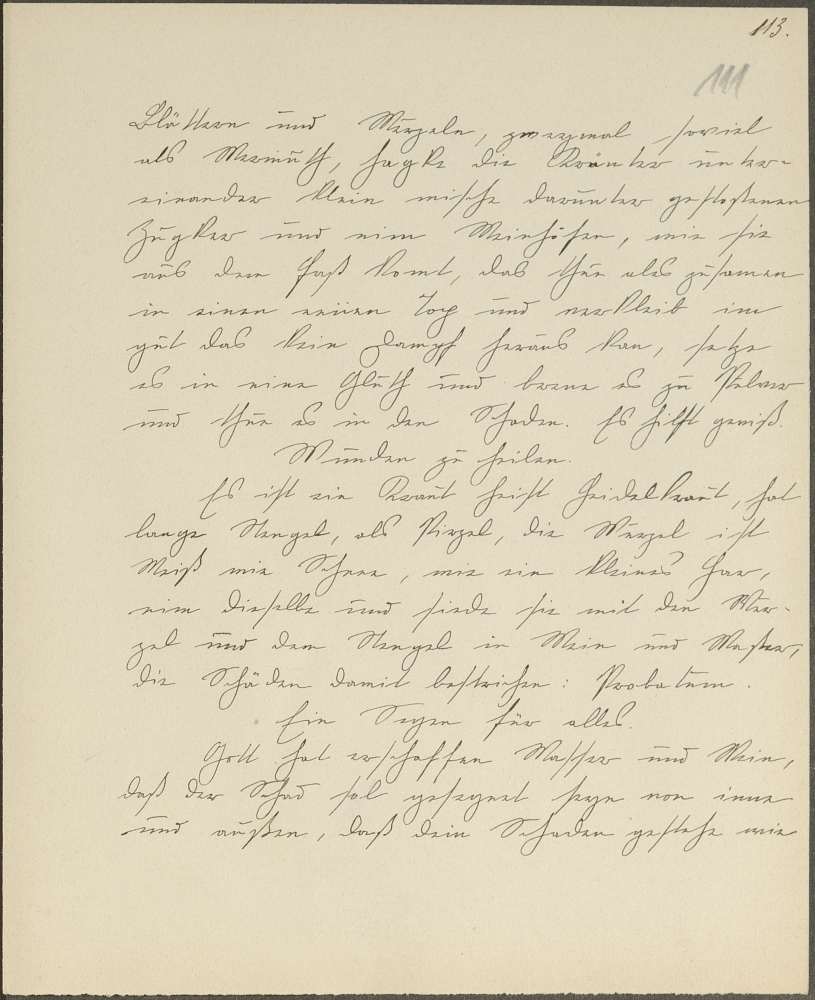 113.
111
Blättern und Wurzeln, zweymal soviel
als Wermuth, hagke die Kräuter unter-
einander klein mische darunter gestoßenen
Zugker und nim Weinhöfen, wie sie
aus dem Faß komt, das thue alles zusamen
in einen neuen Top und verkleib im
gut das kein Dampf heraus kan, setze
es in eine Gluth und brene es zu Pulver
und thue es in den Schaden. Es hilft gewiß.
Wunden zu heilen.
Es ist ein Kraut heist Heidelkraut, hat
lange Stengel, als Pirzel, die Wurzel ist
Weiß wie Schnee, wie ein kleines Har,
nim dieselbe und siede sie mit den Wur-
zel und dem Stengel in Wein und Waßer,
die Schäden damit bestrichen: Probatum.
Ein Segen für alles.
Gott hat erschaffen Wasser und Wein,
daß der Schad sol gesegnet seyn von inne
und außen, daß dein Schaden gestehe wie